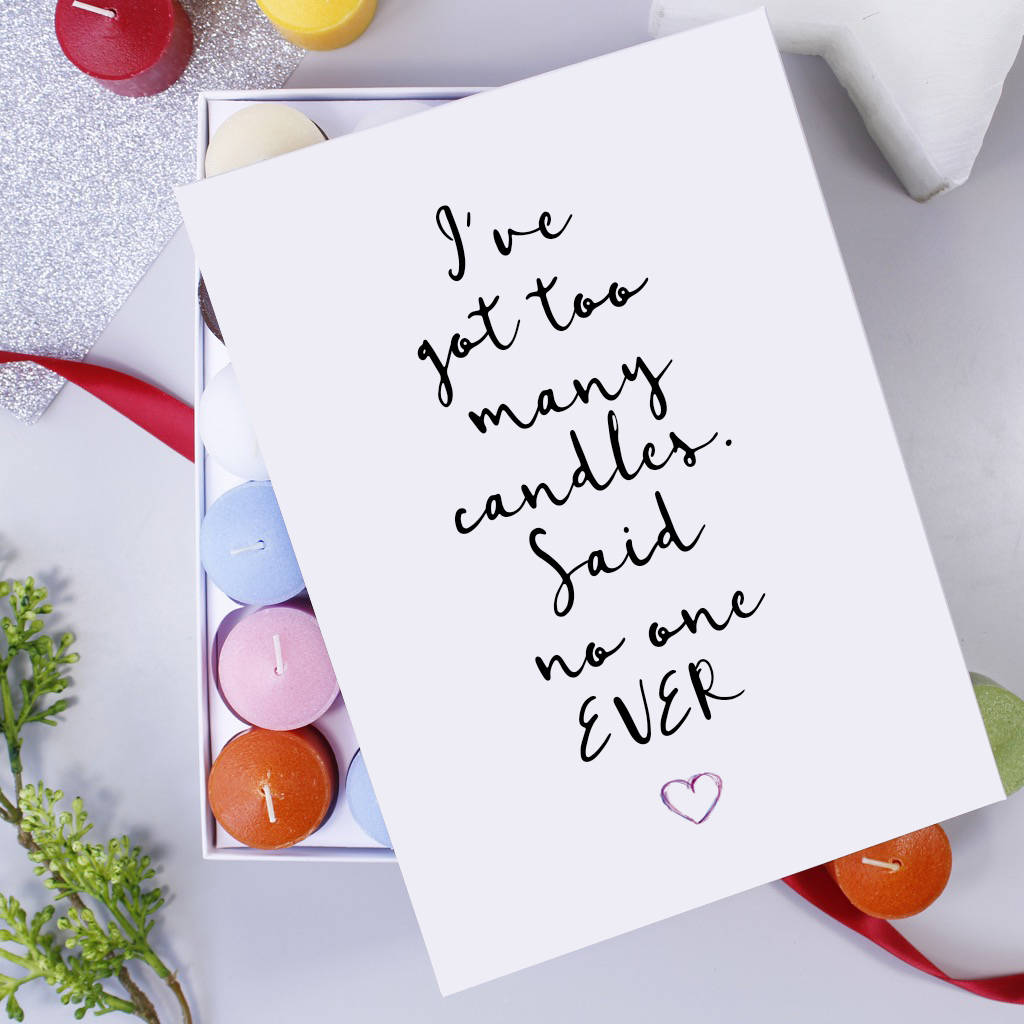 I've
got too
many
candles.
Said
no one
EVER